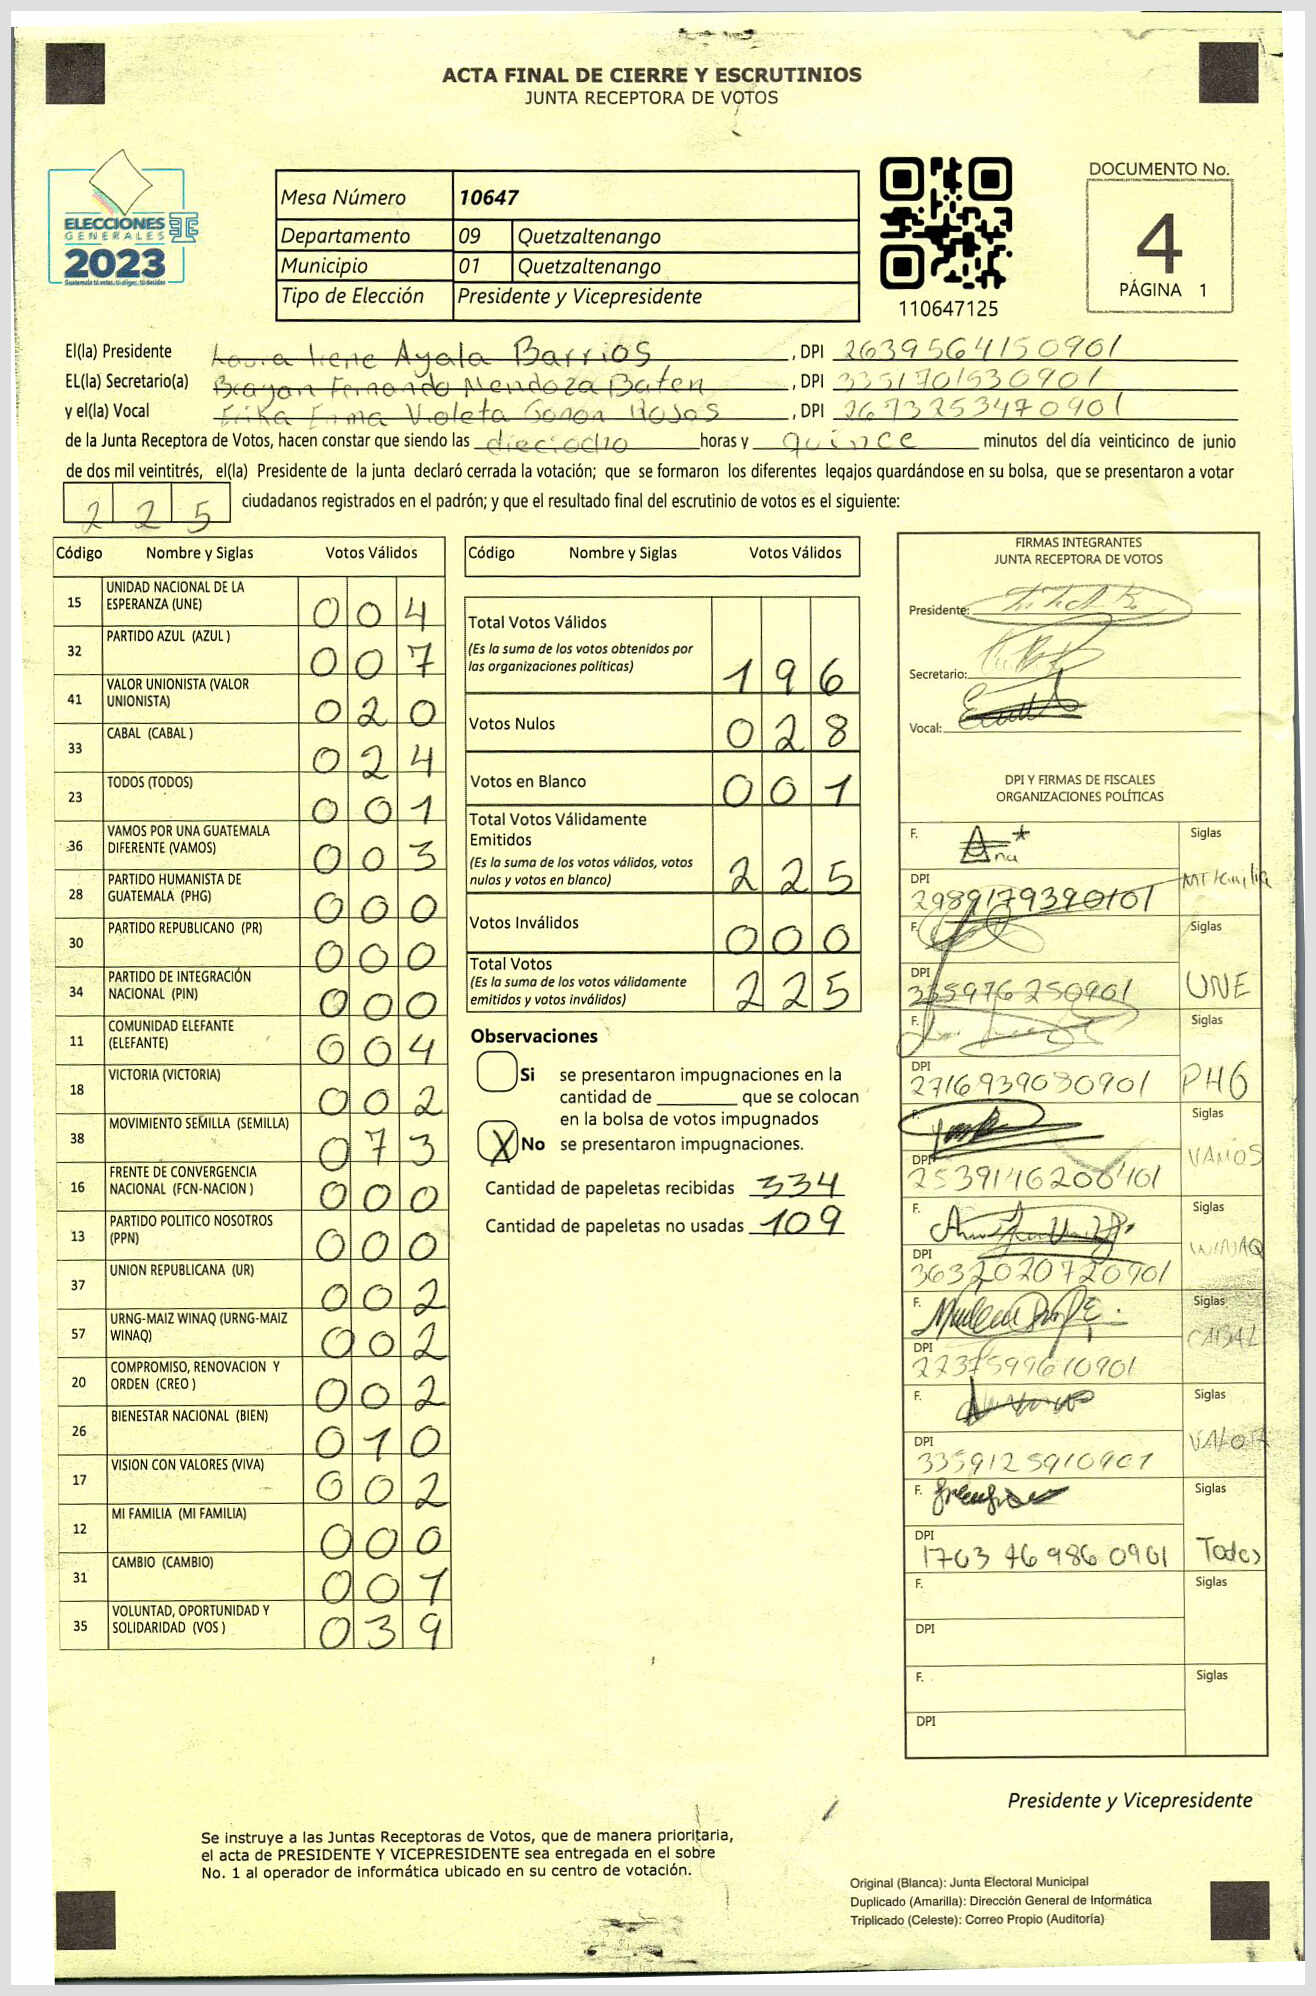 ACTA FINAL DE CIERRE Y ESCRUTINIOS
JUNTA RECEPTORA DE VOTOS
ELECCIONES
GENERALES
2023
Guatemala tú votas, tú eliges, tú decides
Mesa Número 10647
Departamento 09 Quetzaltenango
Municipio 01 Quetzaltenango
Tipo de Elección Presidente y Vicepresidente
110647125
DOCUMENTO No.
4
PÁGINA 1
El(la) Presidente Laura Irene Ayala Barrios , DPI 2639564150901
EL(la) Secretario(a) Brayan Fernando Mendoza Baten , DPI 3351701530901
y el(la) Vocal Erika Violeta Rosas , DPI 2673253470901
de la Junta Receptora de Votos, hacen constar que siendo las dieciocho horas y quince minutos del día veinticinco de junio
de dos mil veintitrés, el(la) Presidente de la junta declaró cerrada la votación; que se formaron los diferentes legajos guardándose en su bolsa, que se presentaron a votar
225 ciudadanos registrados en el padrón; y que el resultado final del escrutinio de votos es el siguiente:
Código Nombre y Siglas Votos Válidos
15 UNIDAD NACIONAL DE LA ESPERANZA (UNE) 004
32 PARTIDO AZUL (AZUL ) 007
41 VALOR UNIONISTA (VALOR UNIONISTA) 020
33 CABAL (CABAL ) 024
23 TODOS (TODOS) 001
36 VAMOS POR UNA GUATEMALA DIFERENTE (VAMOS) 003
28 PARTIDO HUMANISTA DE GUATEMALA (PHG) 000
30 PARTIDO REPUBLICANO (PR) 000
34 PARTIDO DE INTEGRACIÓN NACIONAL (PIN) 000
11 COMUNIDAD ELEFANTE (ELEFANTE) 004
18 VICTORIA (VICTORIA) 002
38 MOVIMIENTO SEMILLA (SEMILLA) 073
16 FRENTE DE CONVERGENCIA NACIONAL (FCN-NACION ) 000
13 PARTIDO POLITICO NOSOTROS (PPN) 000
37 UNION REPUBLICANA (UR) 002
57 URNG-MAIZ WINAQ (URNG-MAIZ WINAQ) 002
20 COMPROMISO, RENOVACION Y ORDEN (CREO ) 002
26 BIENESTAR NACIONAL (BIEN) 010
17 VISION CON VALORES (VIVA) 002
12 MI FAMILIA (MI FAMILIA) 000
31 CAMBIO (CAMBIO) 001
35 VOLUNTAD, OPORTUNIDAD Y SOLIDARIDAD (VOS ) 039
Código Nombre y Siglas Votos Válidos
Total Votos Válidos
(Es la suma de los votos obtenidos por
las organizaciones políticas) 196
Votos Nulos 028
Votos en Blanco 001
Total Votos Válidamente
Emitidos
(Es la suma de los votos válidos, votos
nulos y votos en blanco) 225
Votos Inválidos 000
Total Votos
(Es la suma de los votos válidamente
emitidos y votos inválidos) 225
Observaciones
Si se presentaron impugnaciones en la
cantidad de ________ que se colocan
en la bolsa de votos impugnados
X No se presentaron impugnaciones.
Cantidad de papeletas recibidas 334
Cantidad de papeletas no usadas 109
FIRMAS INTEGRANTES
JUNTA RECEPTORA DE VOTOS
Presidente:
Secretario:
Vocal:
DPI Y FIRMAS DE FISCALES
ORGANIZACIONES POLÍTICAS
F. Ana Siglas
DPI
2989179390101
F. Siglas
DPI UNE
335976250901
F. Siglas
DPI PHG
2716939080901
F. Siglas
DPI VAMOS
2539146200401
F. Siglas
DPI WINAQ
3632020720901
F. Siglas
DPI CABAL
2237599610901
F. Siglas
DPI VALOR
3359125910901
F. Siglas
DPI Todos
1703469860901
F. Siglas
DPI
F. Siglas
DPI
Presidente y Vicepresidente
Se instruye a las Juntas Receptoras de Votos, que de manera prioritaria,
el acta de PRESIDENTE Y VICEPRESIDENTE sea entregada en el sobre
No. 1 al operador de informática ubicado en su centro de votación.
Original (Blanca): Junta Electoral Municipal
Duplicado (Amarilla): Dirección General de Informática
Triplicado (Celeste): Correo Propio (Auditoría)